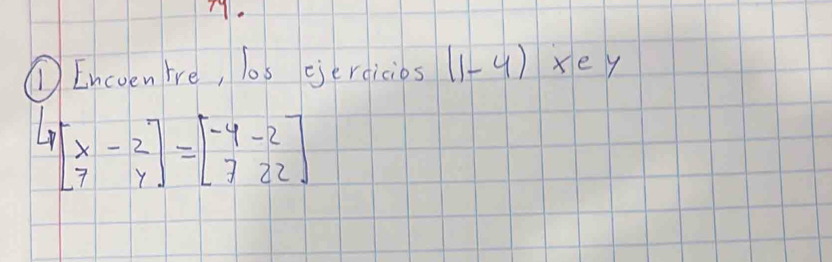 ① Encuentre, los ejercicios (1-4) x e y
[x -2] = [-4 -2]
[7 y] [7 22]